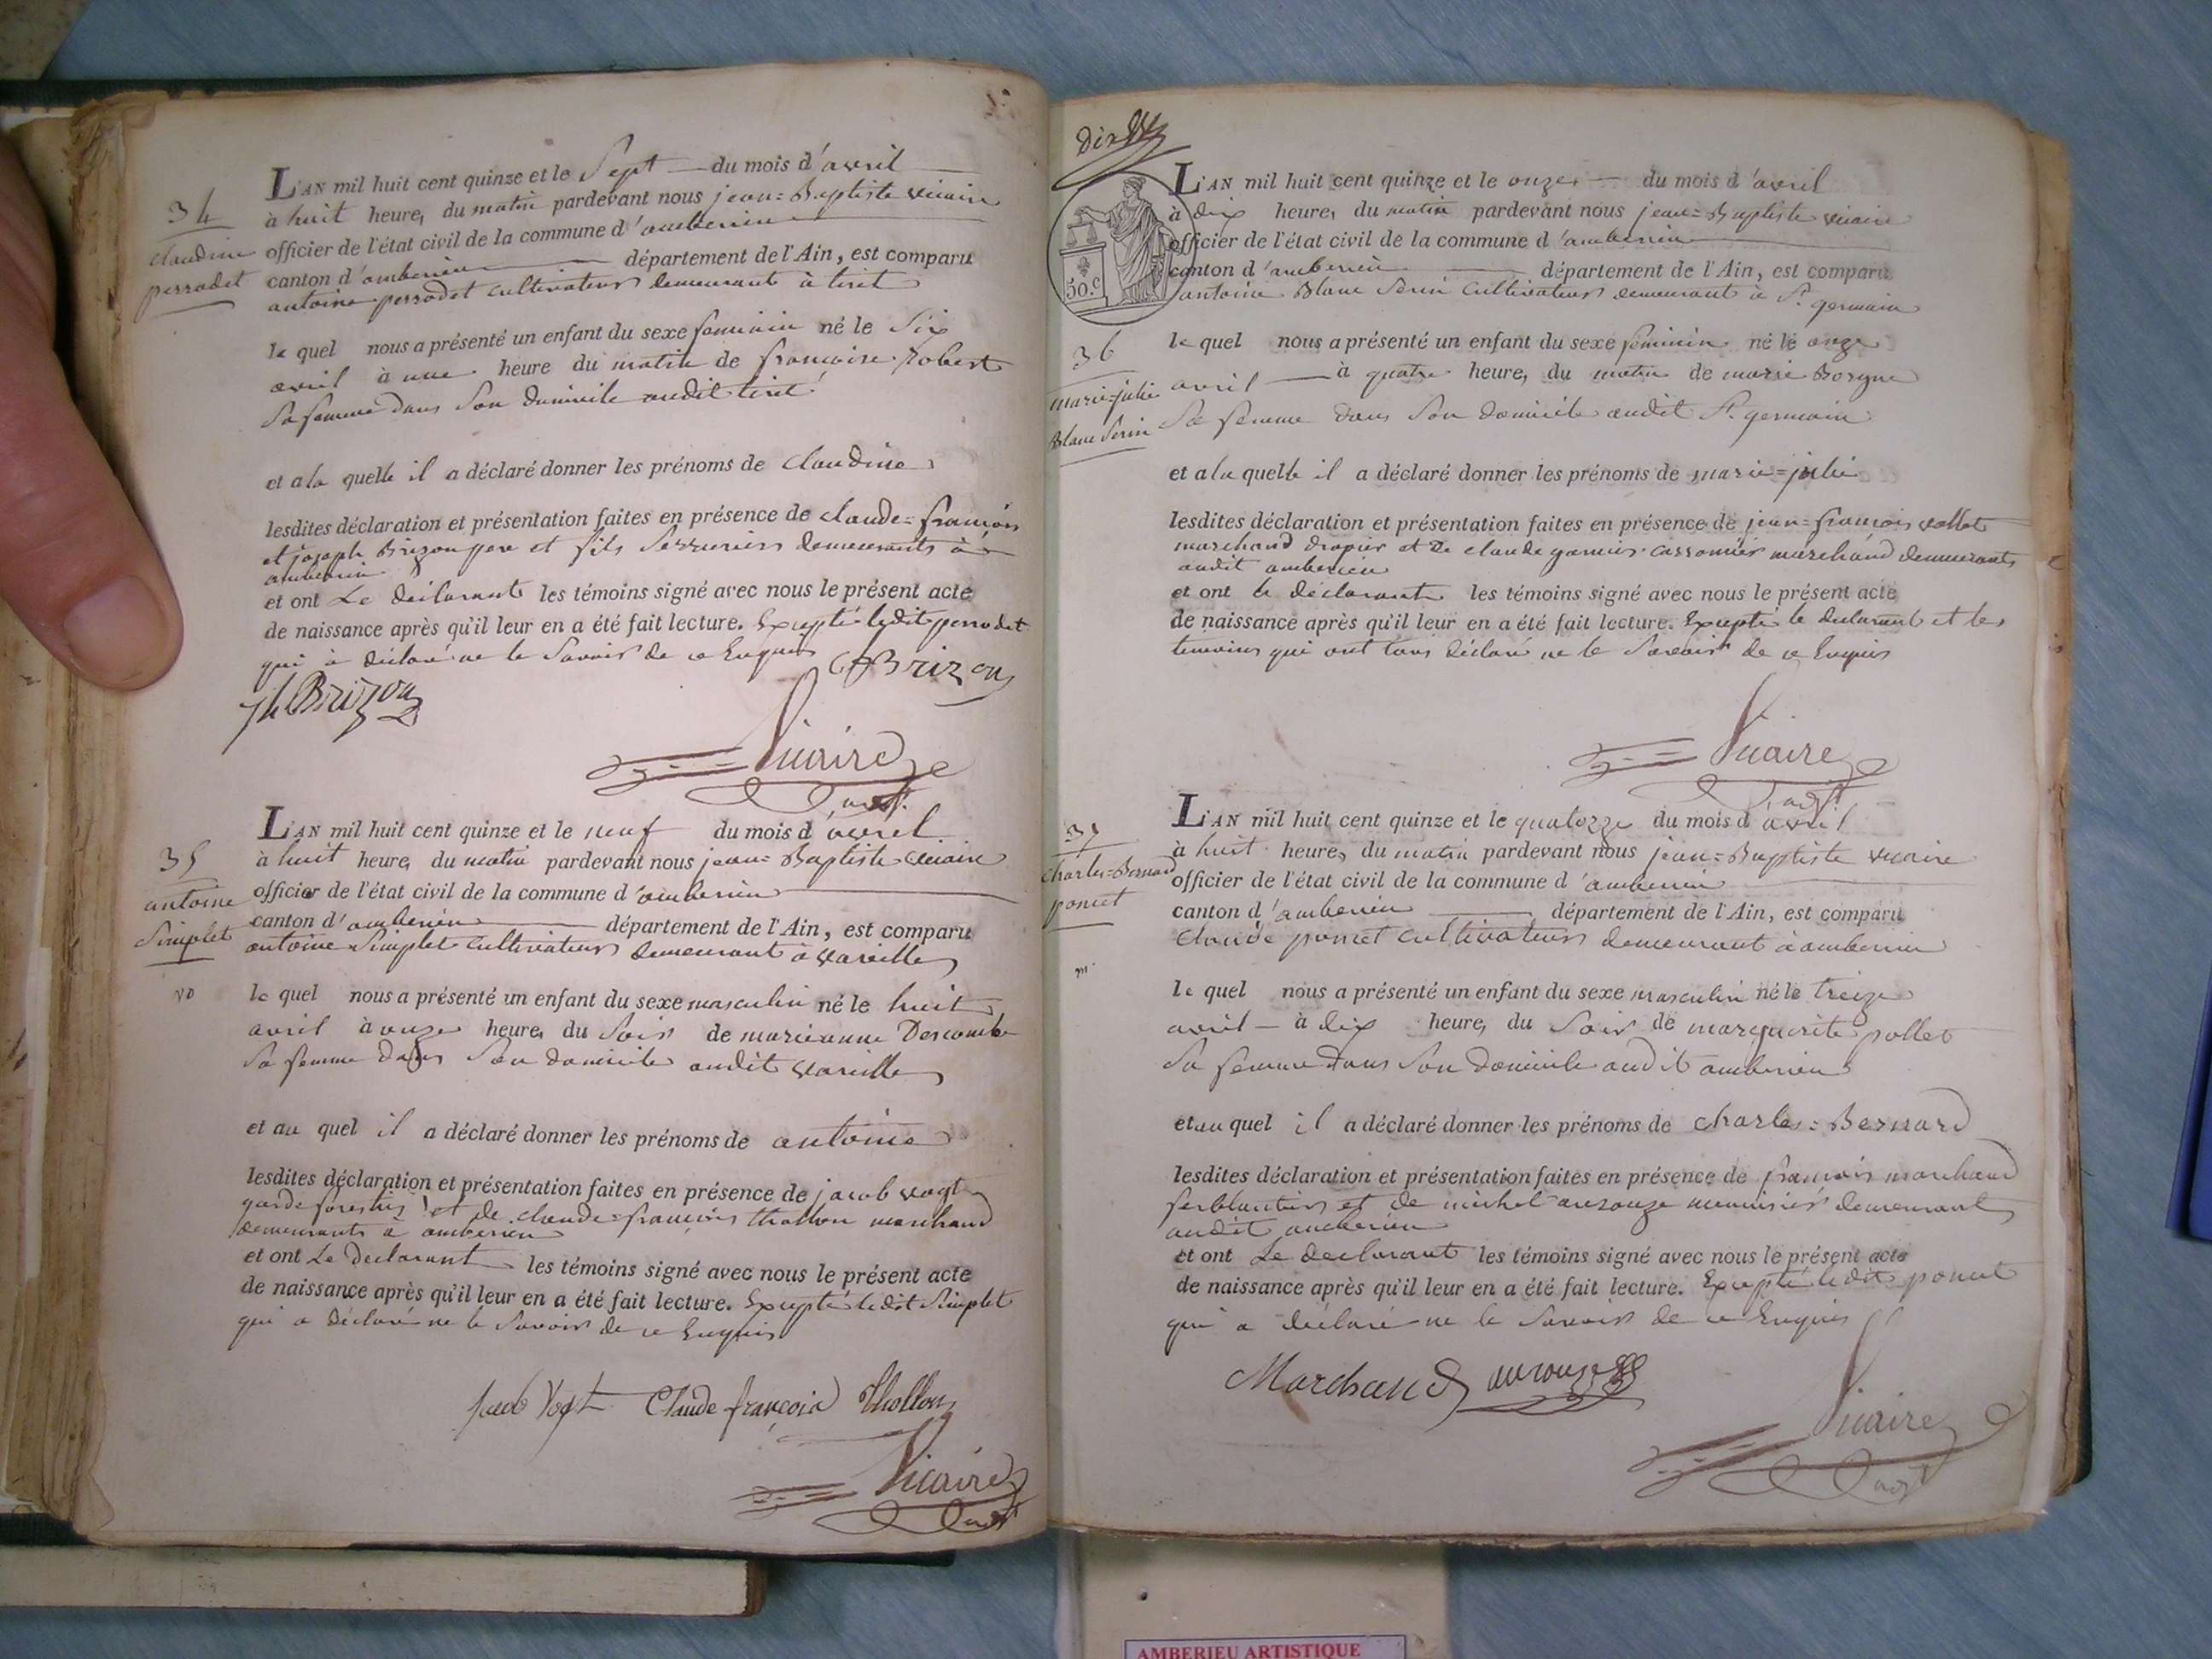 34
claudine
perrodet
L'AN mil huit cent quinze et le Sept du mois d'avril
à huit heures du matin pardevant nous jean=Baptiste vicaire
officier de l'état civil de la commune d'amberieu
canton d'amberieu département de l'Ain, est comparu
antoine perrodet cultivateur demeurant à tiret
le quel nous a présenté un enfant du sexe feminin né le Six
avril à une heure du matin de francoise Robert
Sa femme dans Son domicile audit tiret
et a la quelle il a déclaré donner les prénoms de claudine
lesdites déclaration et présentation faites en présence de claude=françois
et joseph Brizon pere et fils Serruriers demeurants à
amberieu
et ont Le déclarant les témoins signé avec nous le présent acte
de naissance après qu'il leur en a été fait lecture. Excepté ledit perrodet
qui a déclaré ne le Savoir de ce Enquis
CfBrizon
Jh Brizon
Vicaire
adjt
35
antoine
Simplet
L'AN mil huit cent quinze et le neuf du mois d'avril
à huit heures du matin pardevant nous jean=Baptiste vicaire
officier de l'état civil de la commune d'amberieu
canton d'amberieu département de l'Ain, est comparu
antoine Simplet cultivateur demeurant à vareille
le quel nous a présenté un enfant du sexe masculin né le huit
avril à onze heures du Soir de marieanne Descombe
Sa femme dans Son domicile audit vareille
et au quel il a déclaré donner les prénoms de antoine
lesdites déclaration et présentation faites en présence de jacob vogt
garde forestier et de claude=françois thollon marchand
demeurants à amberieu
et ont Le declarant les témoins signé avec nous le présent acte
de naissance après qu'il leur en a été fait lecture. Excepté ledit Simplet
qui a déclaré ne le Savoir de ce Enquis
Jacob Vogt Claude françois Thollon
Vicaire
adjt
dix
50.c
36
marie=julie
Blanc Serin
L'AN mil huit cent quinze et le onze du mois d'avril
à dix heures du matin pardevant nous jean=Baptiste vicaire
officier de l'état civil de la commune d'amberieu
canton d'amberieu département de l'Ain, est comparu
antoine Blanc Serin cultivateur demeurant à St. germain
le quel nous a présenté un enfant du sexe féminin né le onze
avril à quatre heures du matin de marie
Sa femme dans Son domicile audit St. germain
et a la quelle il a déclaré donner les prénoms de marie=julie
lesdites déclaration et présentation faites en présence de jean=françois
marchand drapier et de claude marchand demeurants
audit amberieu
et ont le déclarant les témoins signé avec nous le présent acte
de naissance après qu'il leur en a été fait lecture. Excepté le declarant et les
temoins qui ont tous déclaré ne le Savoir de ce Enquis
Vicaire
adjt
37
charles=Bernard
poncet
m
L'AN mil huit cent quinze et le quatorze du mois d'avril
à huit heures du matin pardevant nous jean=Baptiste vicaire
officier de l'état civil de la commune d'amberieu
canton d'amberieu département de l'Ain, est comparu
Claude poncet cultivateur demeurant à amberieu
le quel nous a présenté un enfant du sexe masculin né le treize
avril à dix heures du Soir de marguerite pollet
Sa femme dans Son domicile audit amberieu
et au quel il a déclaré donner les prénoms de charles=Bernard
lesdites déclaration et présentation faites en présence de françois marchand
ferblantier et de michel auzouze menuisier demeurant
audit amberieu
et ont Le declarant les témoins signé avec nous le présent acte
de naissance après qu'il leur en a été fait lecture. Excepté ledit poncet
qui a déclaré ne le Savoir de ce Enquis
Marchand
Vicaire
adjt
AMBERIEU ARTISTIQUE